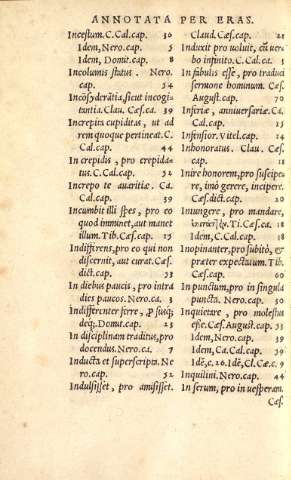 ANNOTATA PER ERAS.
Incestum. C. Cal. cap. 36
Idem, Nero. cap. 5
Idem, Domit. cap. 8
Incolumis status. Nero.
cap. 54
Incōsyderātia, sicut incogi-
tantia. Clau. Cæs. ca. 39
Increpita cupiditas, ut ad
rem quoque pertineat. C.
Cal. cap. 44
In crepidis, pro crepida-
tus. C. Cal. cap. 52
Increpo te auaritiæ. Ca.
Cal. cap. 39
Incumbit illi spes, pro eo
quod imminet, aut manet
illum. Tib. Cæs. cap. 15
Indifferens, pro eo qui non
discernit, aut curat. Cæs.
dict. cap. 53
In diebus paucis, pro intra
dies paucos. Nero. ca. 3
Indifferenter ferre, ꝓ susq́;
deq́;. Domit. cap. 23
In disciplinam traditus, pro
docendus. Nero. ca. 7
Inducta et superscripta. Ne
ro. cap. 52
Indulsisset, pro amisisset.
Claud. Cæs. cap. 21
Induxit pro uoluit, cū uer-
bo infinito. C. Cal. ca. 8
In fabulis esse, pro traduci
sermone hominum. Cæs.
August. cap. 70
Inferiæ, anniuersariæ. Ca.
Cal. cap. 15
Infensior. Vitel. cap. 14
Inhonoratus. Clau. Cæs.
cap. 11
Inire honorem, pro suscipe-
re, imò gerere, incipere.
Cæs. dict. cap. 20
Iniungere, pro mandare,
Ti. Cæs. ca. 18
Idem, C. Cal. cap. 18
Inopinanter, pro subitò, et
præter expectatum. Tib.
Cæs. cap. 60
In puncium, pro in singula
puncta. Nero. cap. 30
Inquietare, pro molestus
esse. Cæs. August. cap. 53
Idem, Nero. cap. 39
Idem, Ca. Cal. cap. 39
Idē, c. 26. Idē, Cl. Cæ. c. 9
Inquilini. Nero. cap. 44
In serum, pro in uesperam.
Cæs.